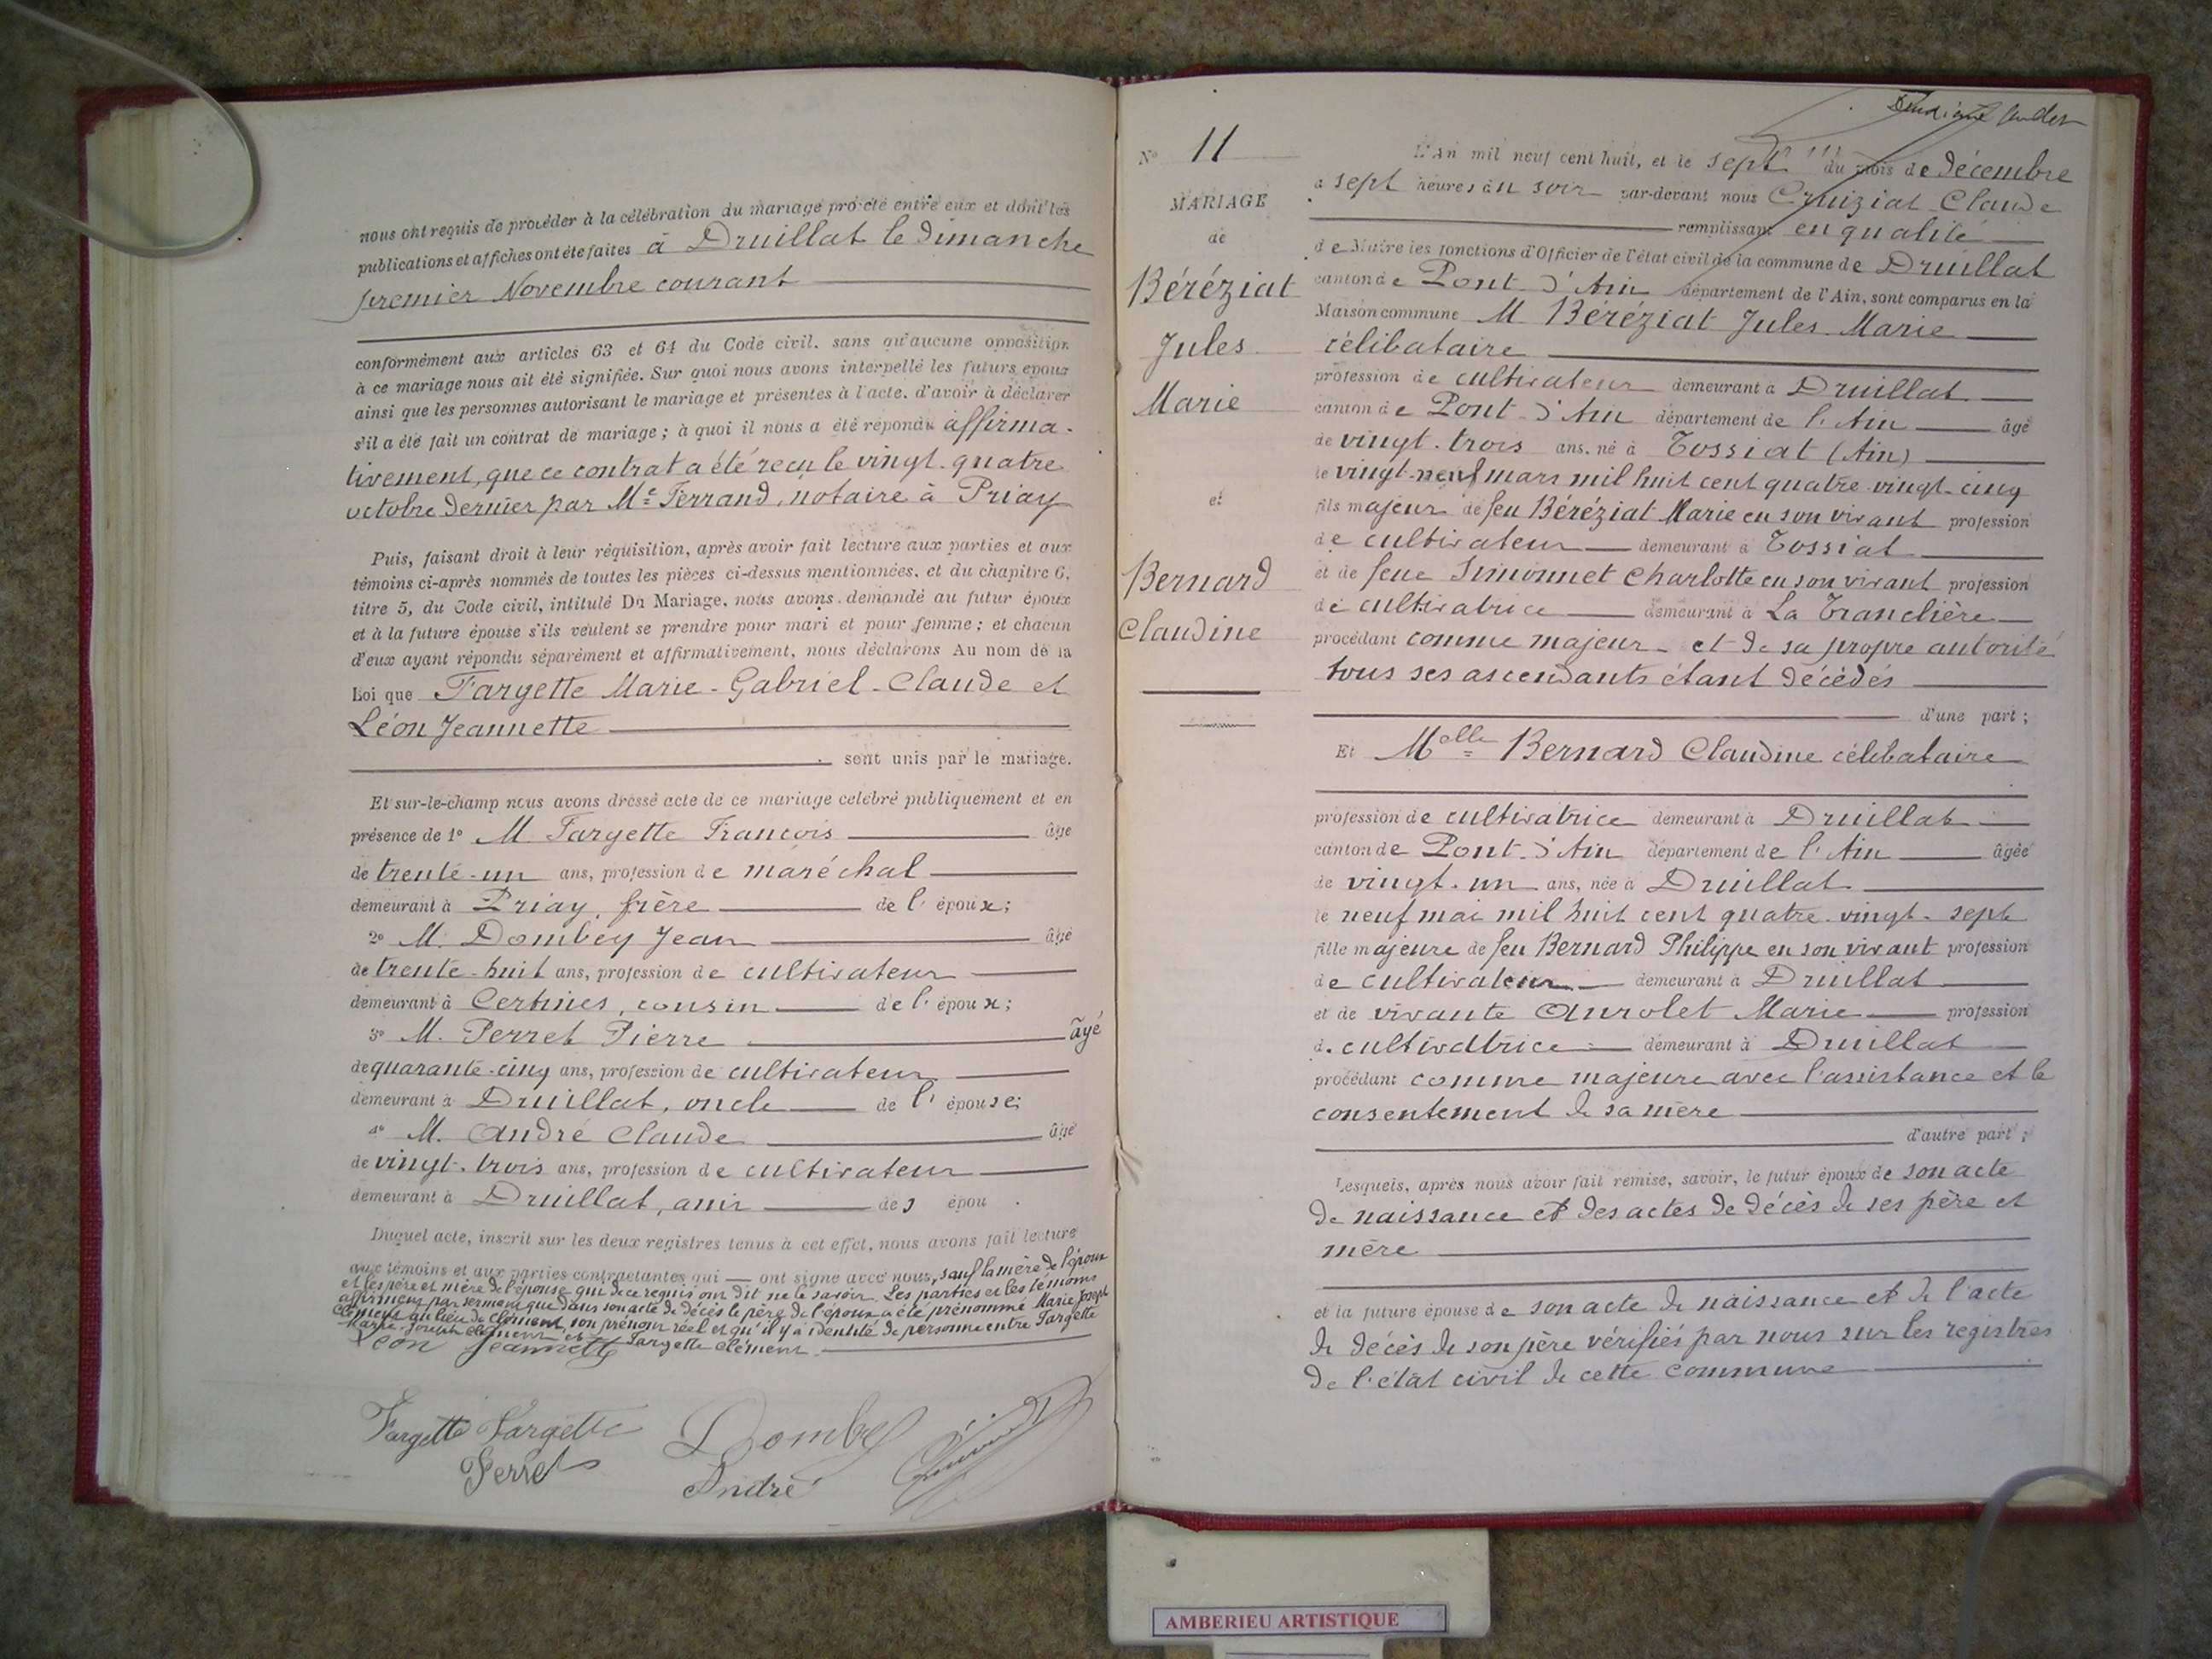 nous ont requis de procéder à la célébration du mariage projeté entre eux et dont les
publications et affiches ont été faites à Druillat le dimanche
premier Novembre courant
conformément aux articles 63 et 64 du Code civil, sans qu'aucune opposition
à ce mariage nous ait été signifiée. Sur quoi nous avons interpellé les futurs époux
ainsi que les personnes autorisant le mariage et présentes à l'acte, d'avoir à déclarer
s'il a été fait un contrat de mariage ; à quoi il nous a été répondu affirma-
tivement, que ce contrat a été reçu le vingt-quatre
octobre dernier par Me Ferrand, notaire à Priay
Puis, faisant droit à leur réquisition, après avoir fait lecture aux parties et aux
témoins ci-après nommés de toutes les pièces ci-dessus mentionnées, et du chapitre 6,
titre 5, du Code civil, intitulé Du Mariage, nous avons demandé au futur époux
et à la future épouse s'ils veulent se prendre pour mari et pour femme ; et chacun
d'eux ayant répondu séparément et affirmativement, nous déclarons Au nom de la
Loi que Fargette Marie-Gabriel-Claude et
Léon Jeannette
sont unis par le mariage.
Et sur-le-champ nous avons dressé acte de ce mariage célébré publiquement et en
présence de 1° M. Fargette François âgé
de trente-un ans, profession de maréchal
demeurant à Priay, frère de l'époux ;
2° M. Dombey Jean âgé
de trente-huit ans, profession de cultivateur
demeurant à Certines, cousin de l'époux ;
3° M. Perret Pierre âgé
de quarante-cinq ans, profession de cultivateur
demeurant à Druillat, oncle de l'épouse ;
4° M. André Claude âgé
de vingt-trois ans, profession de cultivateur
demeurant à Druillat, ami des épou .
Duquel acte, inscrit sur les deux registres tenus à cet effet, nous avons fait lecture
aux témoins et aux parties contractantes qui ont signé avec nous, sauf la mère de l'époux
et les père et mère de l'épouse qui de ce requis ont dit ne le savoir. Les parties et les témoins
affirment par serment que dans son acte de décès le père de l'époux a été prénommé Marie Joseph
Clément au lieu de Clément, son prénom réel et qu'il y a identité de personne entre Fargette
Marie-Joseph Clément et Fargette Clément
Léon Jeannette
Fargette Fargette Dombey
Perret André
N° 11
MARIAGE
de
Béréziat
Jules
Marie
et
Bernard
Claudine
L'An mil neuf cent huit, et le sept du mois de décembre
à sept heures du soir par-devant nous Cruiziat Claude
remplissant en qualité
de Maire les fonctions d'Officier de l'état civil de la commune de Druillat
canton de Pont-d'Ain département de l'Ain, sont comparus en la
Maison commune M Béréziat Jules Marie
célibataire
profession de cultivateur demeurant à Druillat
canton de Pont-d'Ain département de l'Ain âgé
de vingt-trois ans, né à Tossiat (Ain)
le vingt-neuf mars mil huit cent quatre-vingt-cinq
fils majeur de feu Béréziat Marie en son vivant profession
de cultivateur demeurant à Tossiat
et de feue Simonnet Charlotte en son vivant profession
de cultivatrice demeurant à La Tranclière
procédant comme majeur et de sa propre autorité
tous ses ascendants étant décédés
d'une part ;
Et Melle Bernard Claudine célibataire
profession de cultivatrice demeurant à Druillat
canton de Pont-d'Ain département de l'Ain âgée
de vingt-un ans, née à Druillat
le neuf mai mil huit cent quatre-vingt-sept
fille majeure de feu Bernard Philippe en son vivant profession
de cultivateur demeurant à Druillat
et de vivante Auvolet Marie profession
de cultivatrice demeurant à Druillat
procédant comme majeure avec l'assistance et le
consentement de sa mère
d'autre part ;
Lesquels, après nous avoir fait remise, savoir, le futur époux de son acte
de naissance et des actes de décès de ses père et
mère
et la future épouse de son acte de naissance et de l'acte
de décès de son père vérifiés par nous sur les registres
de l'état civil de cette commune
AMBERIEU ARTISTIQUE